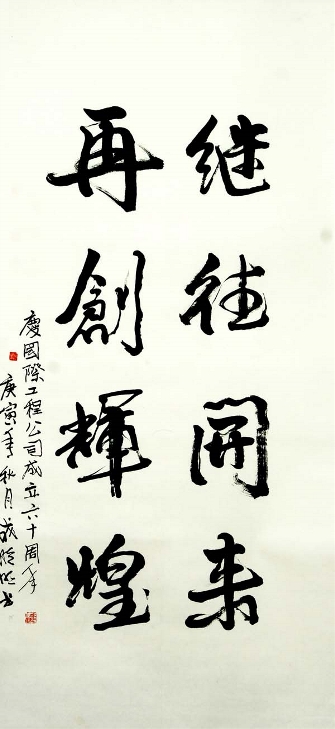 继往開来
再創輝煌
慶國際工程公司成立六十周年
庚寅年秋月